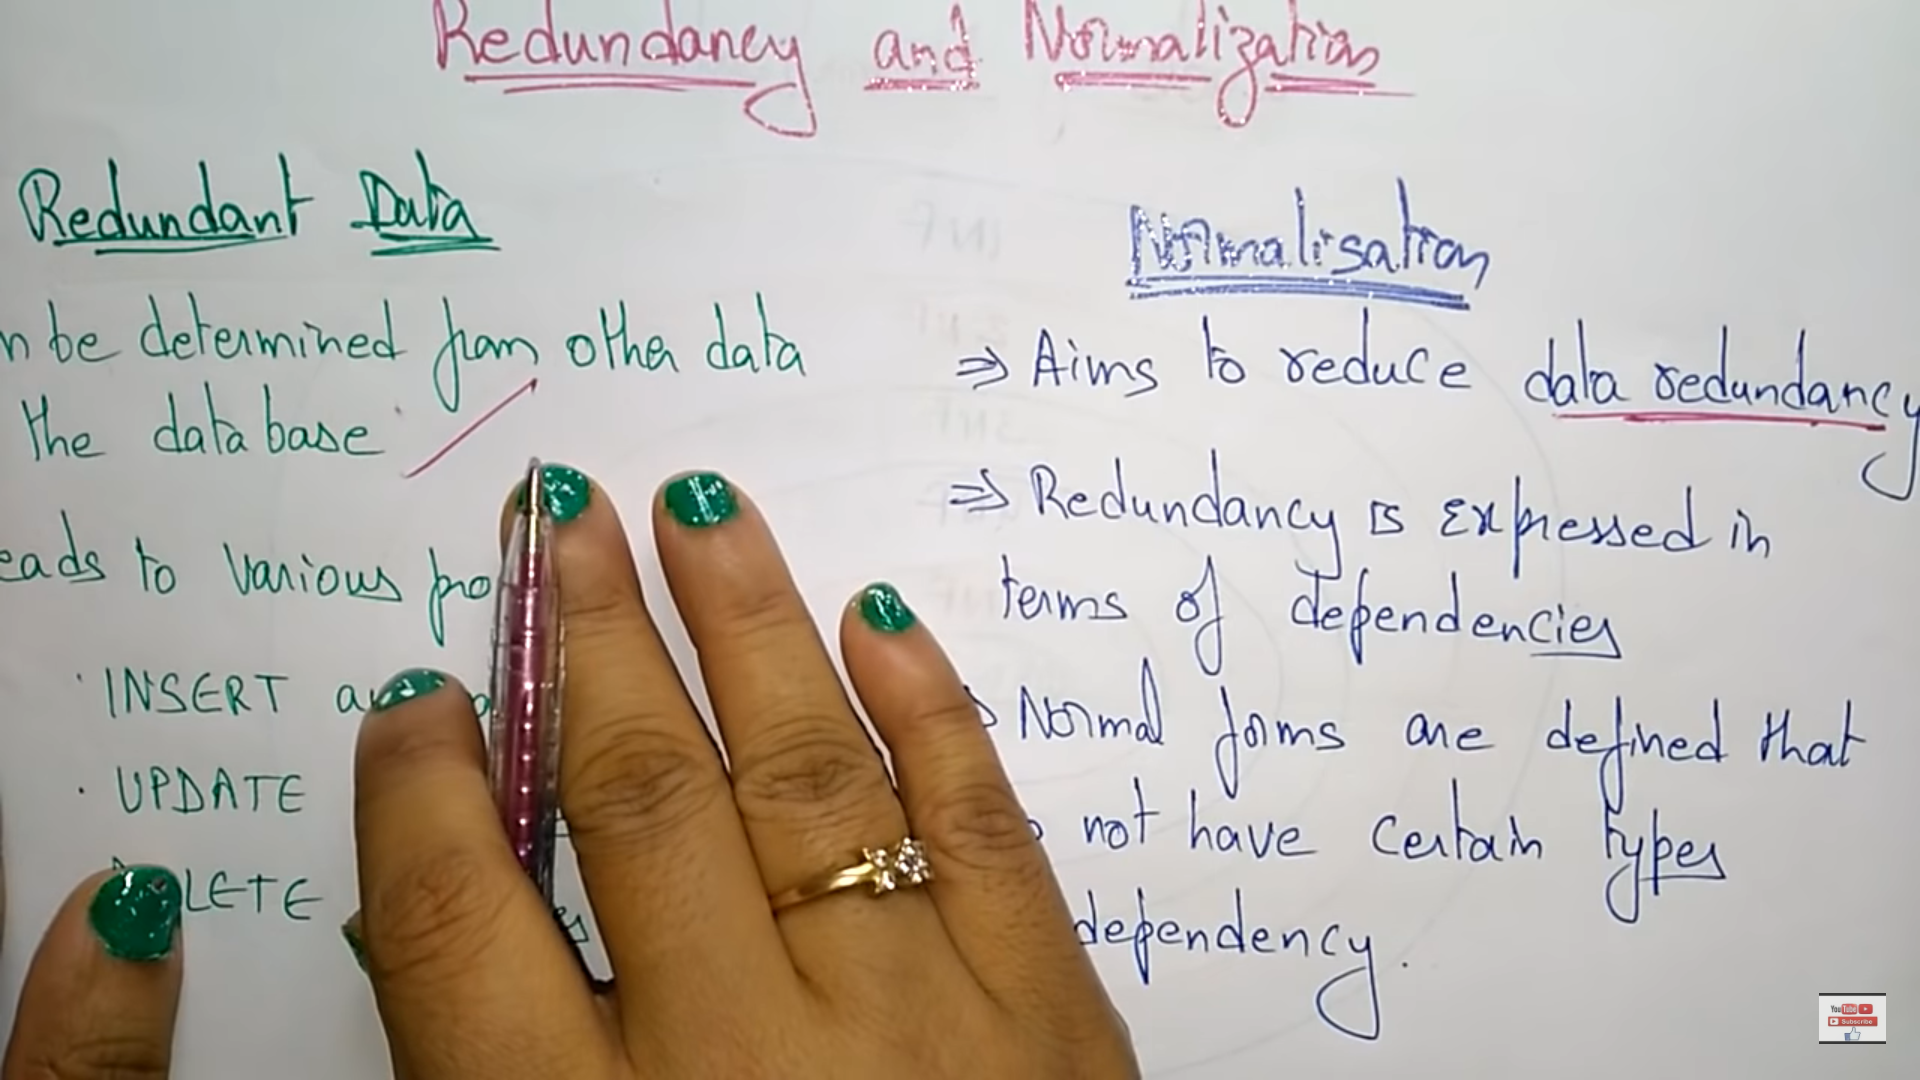 Redundancy and Normalization
Redundant Data
n be determined from other data
the database
eads to various pro
· INSERT
· UPDATE
LETE
Normalisation
⇒ Aims to reduce data redundancy
⇒ Redundancy is expressed in
terms of dependencies
Normal forms are defined that
not have certain types
dependency.
YouTube
Subscribe